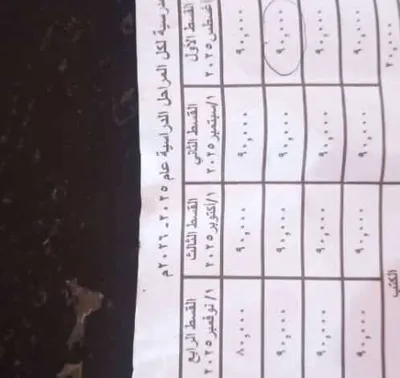 لكل المراحل الدراسية عام ٢٠٢٥-٢٠٢٦م
القسط الأول القسط الثاني القسط الثالث القسط الرابع
أغسطس ٢٠٢٥ ١/سبتمبر ٢٠٢٥ ١/أكتوبر ٢٠٢٥ ١/نوفمبر ٢٠٢٥
٩٠,٠٠٠ ٩٠,٠٠٠ ٩٠,٠٠٠ ٨٠,٠٠٠
٩٠,٠٠٠ ٩٠,٠٠٠ ٩٠,٠٠٠ ٩٠,٠٠٠
٩٠,٠٠٠ ٩٠,٠٠٠ ٩٠,٠٠٠ ٩٠,٠٠٠
٩٠,٠٠٠ ٩٠,٠٠٠ ٩٠,٠٠٠ ٩٠,٠٠٠
٢٠,٠٠٠ الكتب